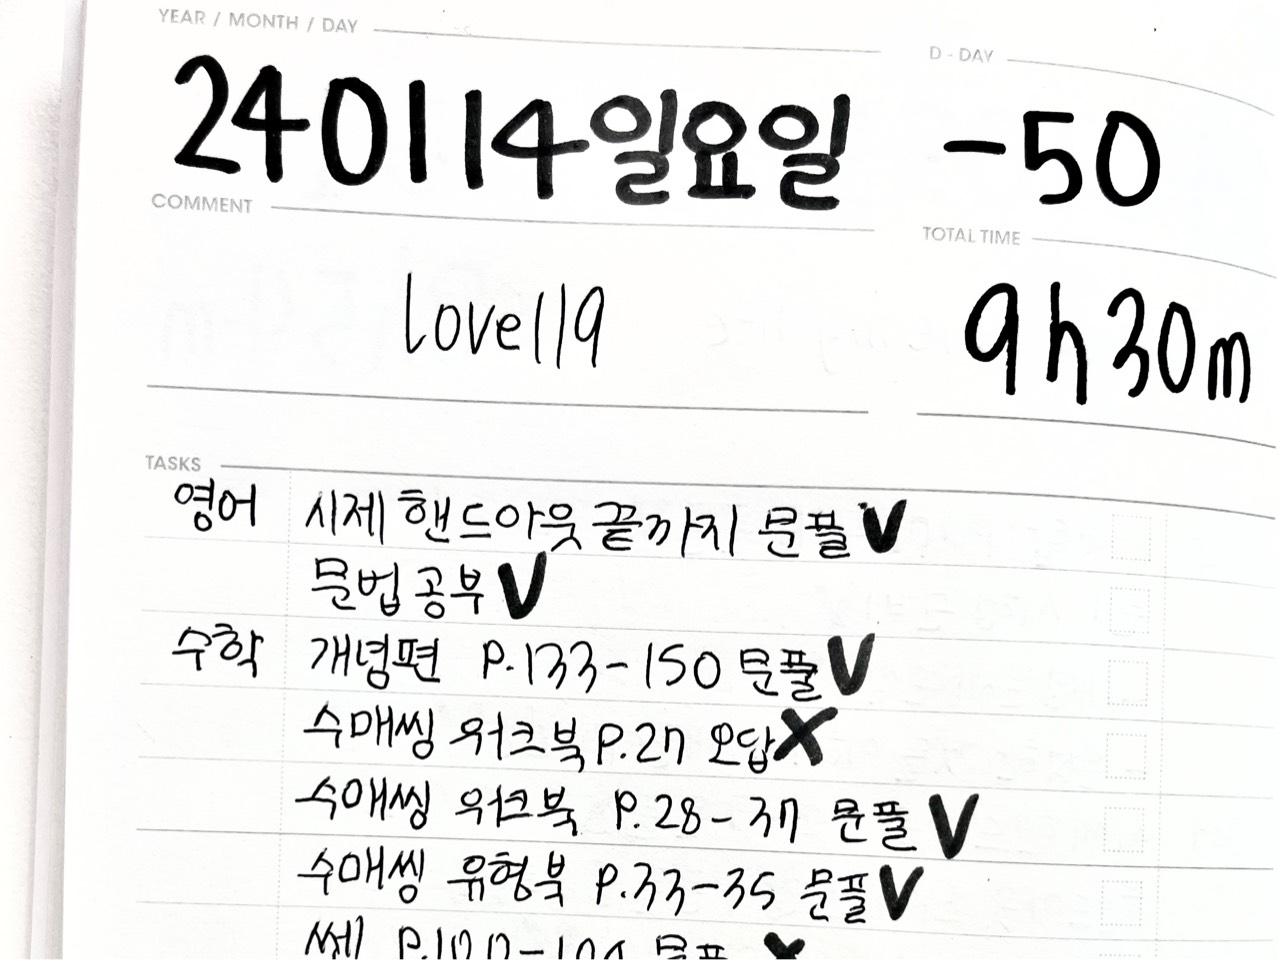 YEAR / MONTH / DAY
D - DAY
240114일요일
-50
COMMENT
TOTAL TIME
love119
9h30m
TASKS
영어 시제 핸드아웃 끝까지 문풀 V
문법 공부 V
수학 개념편 P.133-150 문풀 V
수매씽 워크북 P.27 오답 X
수매씽 워크북 P.28-37 문풀 V
수매씽 유형북 P.33-35 문풀 V
쎄 문풀 X